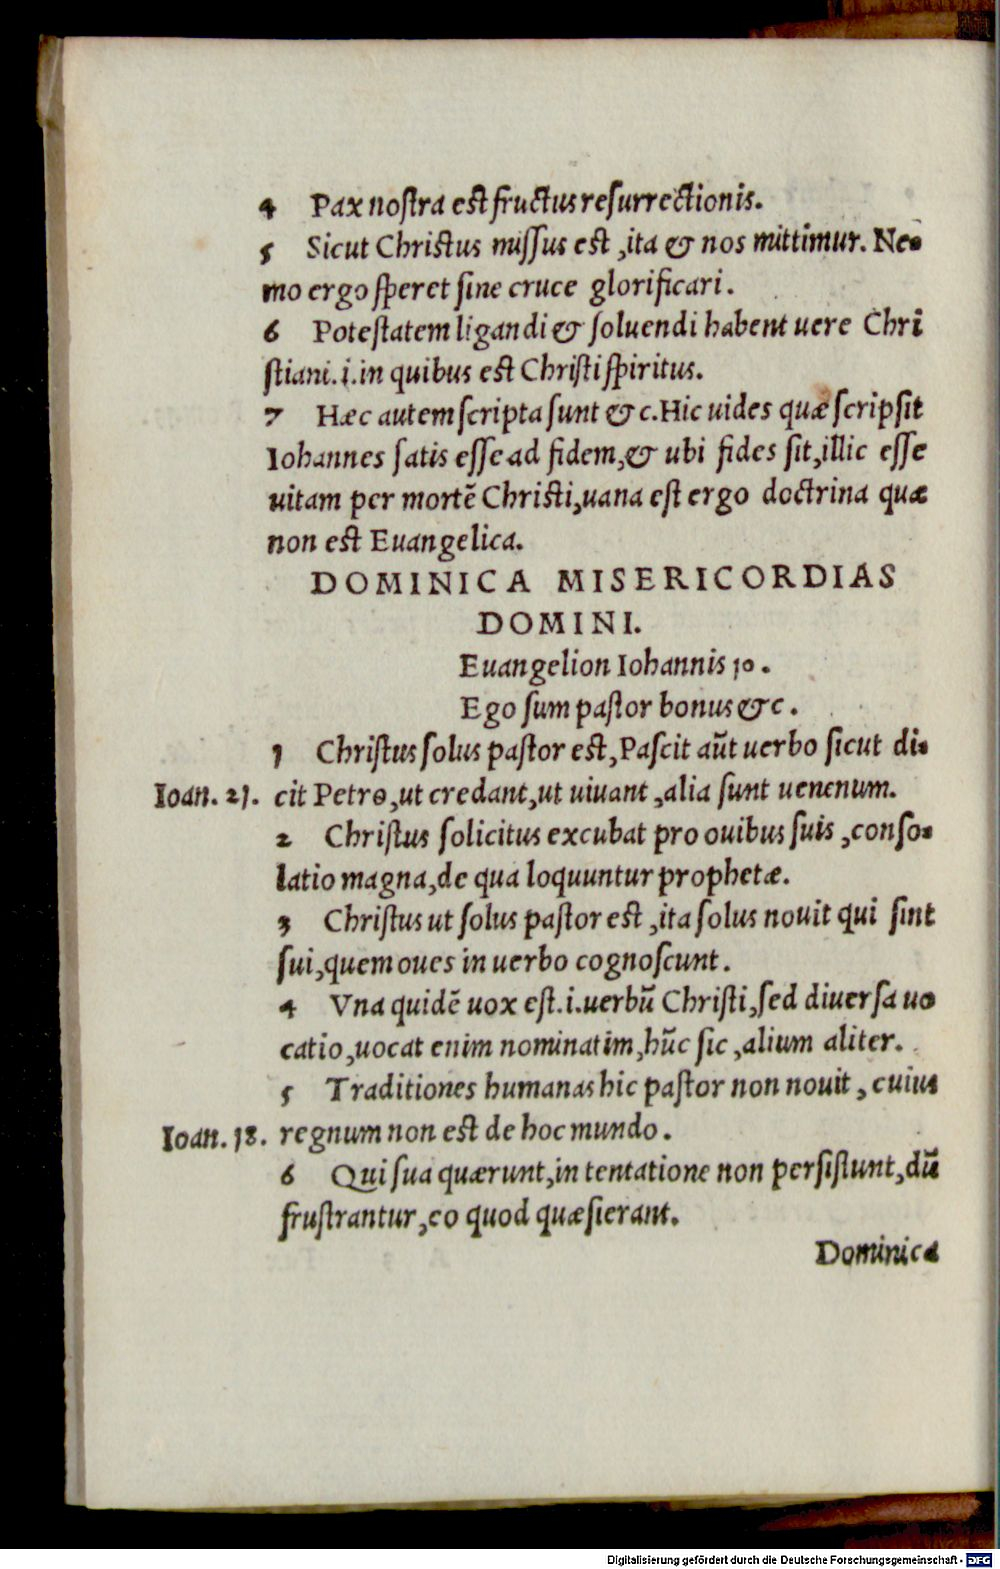 4 Pax nostra est fructus resurrectionis.
5 Sicut Christus missus est, ita & nos mittimur. Ne-
mo ergo speret sine cruce glorificari.
6 Potestatem ligandi & soluendi habent uere Chri
stiani.i.in quibus est Christi spiritus.
7 Hæc autem scripta sunt &c. Hic uides quæ scripsit
Iohannes satis esse ad fidem, & ubi fides sit, illic esse
uitam per mortē Christi, uana est ergo doctrina quæ
non est Euangelica.
DOMINICA MISERICORDIAS
DOMINI.
Euangelion Iohannis 10.
Ego sum pastor bonus &c.
1 Christus solus pastor est, Pascit aūt uerbo sicut di-
Ioan. 21. cit Petro, ut credant, ut uiuant, alia sunt uenenum.
2 Christus solicitus excubat pro ouibus suis, conso-
latio magna, de qua loquuntur prophetæ.
3 Christus ut solus pastor est, ita solus nouit qui sint
sui, quem oues in uerbo cognoscunt.
4 Vna quidē uox est.i.uerbū Christi, sed diuersa uo
catio, uocat enim nominatim, hūc sic, alium aliter.
5 Traditiones humanas hic pastor non nouit, cuius
Ioan. 18. regnum non est de hoc mundo.
6 Qui sua quærunt, in tentatione non persistunt, dū
frustrantur, eo quod quæsierant.
Dominica
Digitalisierung gefördert durch die Deutsche Forschungsgemeinschaft - DFG